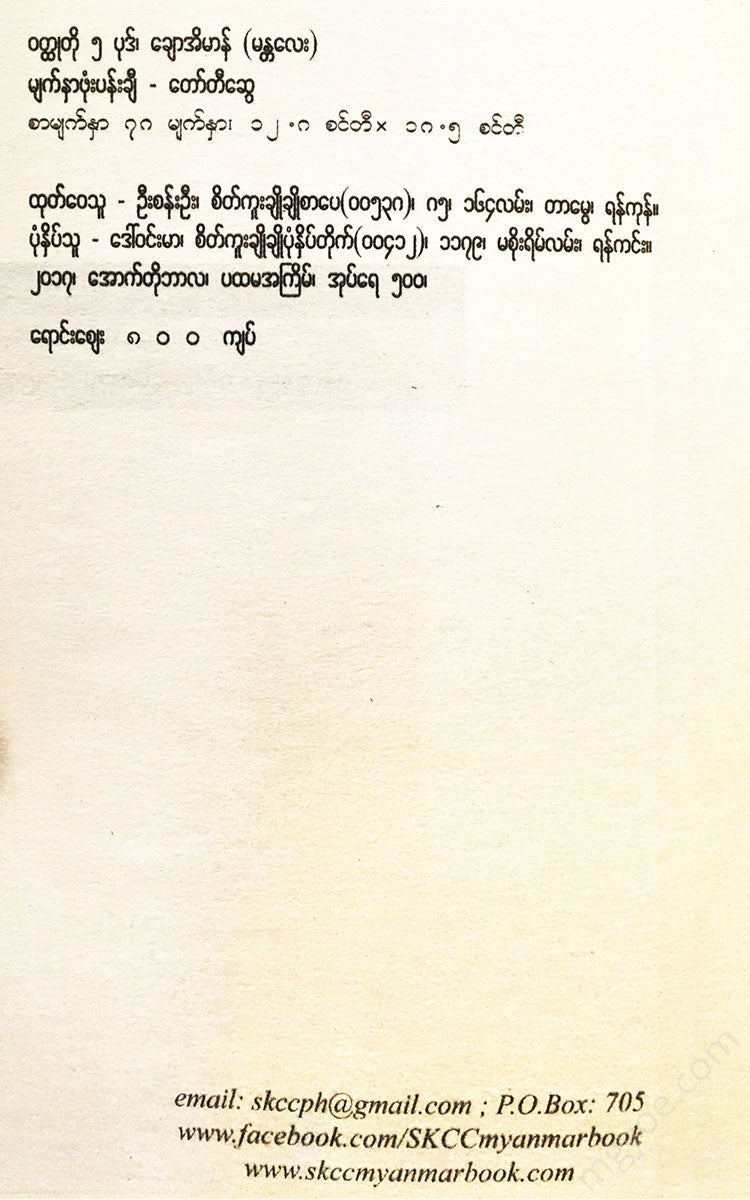 ဝတ္ထုတို ၅ ပုဒ်၊ ချောအိမာန် (မန္တလေး)
မျက်နှာဖုံးပန်းချီ - တော်တီဆွေ
စာမျက်နှာ ၇၈ မျက်နှာ၊ ၁၂.၈ စင်တီ× ၁၈.၅ စင်တီ
ထုတ်ဝေသူ - ဦးစန်းဦး၊ စိတ်ကူးချိုချိုစာပေ(၀၀၅၃၈)၊ ၈၅၊ ၁၆၄လမ်း၊ တာမွေ၊ ရန်ကုန်။
ပုံနှိပ်သူ - ဒေါ်ဝင်းမာ၊ စိတ်ကူးချိုချိုပုံနှိပ်တိုက်(၀၀၄၁၂)၊ ၁၁၇၉၊ မစိုးရိမ်လမ်း၊ ရန်ကင်း။
၂၀၁၇၊ အောက်တိုဘာလ၊ ပထမအကြိမ်၊ အုပ်ရေ ၅၀၀၊
ရောင်းဈေး ၈ ၀ ၀ ကျပ်
email: skccph@gmail.com ; P.O.Box: 705
www.facebook.com/SKCCmyanmarbook
www.skccmyanmarbook.com